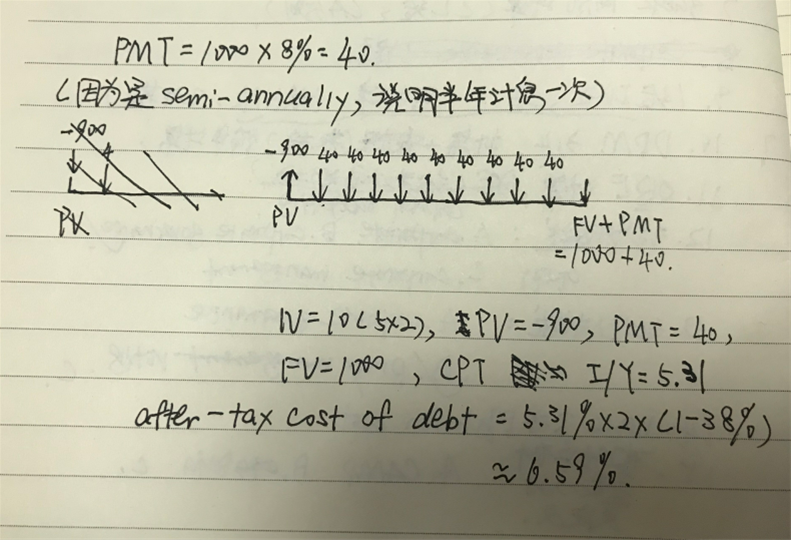 PMT = 1000 × 8% = 40.
(因为是 semi-annually, 说明半年计息一次)
-900
PV
-900 40 40 40 40 40 40 40 40 40
PV
FV + PMT
= 1000 + 40.
N = 10 (5×2), PV = -900, PMT = 40,
FV = 1000, CPT I/Y = 5.31
after-tax cost of debt = 5.31% × 2 × (1-38%)
≈ 6.59%.